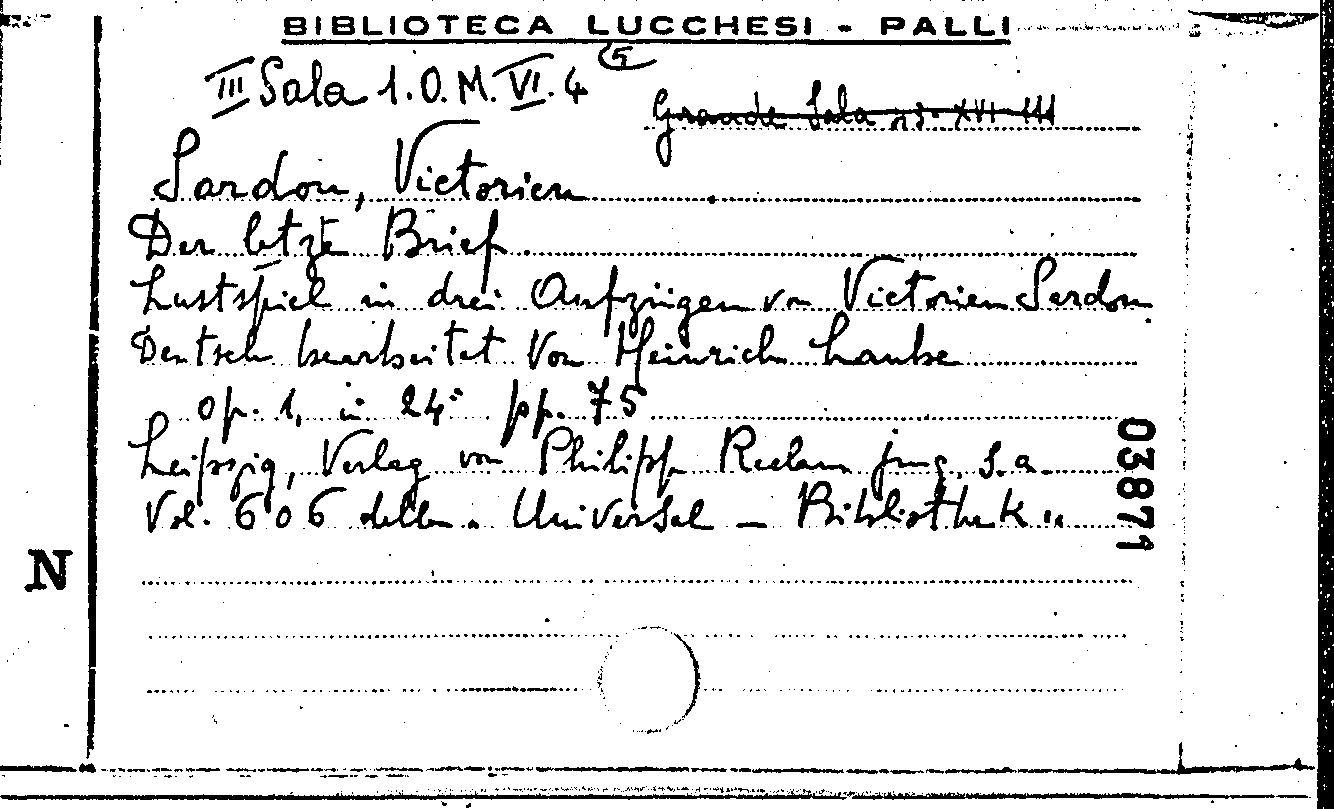 BIBLIOTECA LUCCHESI - PALLI
III Sala 1.O.M.VI.4 (5
Grande Sala 23-XVI-III
Sardou, Victorien
Der letzte Brief.
Lustspiel in drei Aufzügen von Victorien Sardou
Deutsch bearbeitet von Heinrich Laube
op. 1, in 24° pp. 75
Leipzig, Verlag von Philipp Reclam jung, s.a.
Vol. 606 della "Universal-Bibliothek"
03871
N